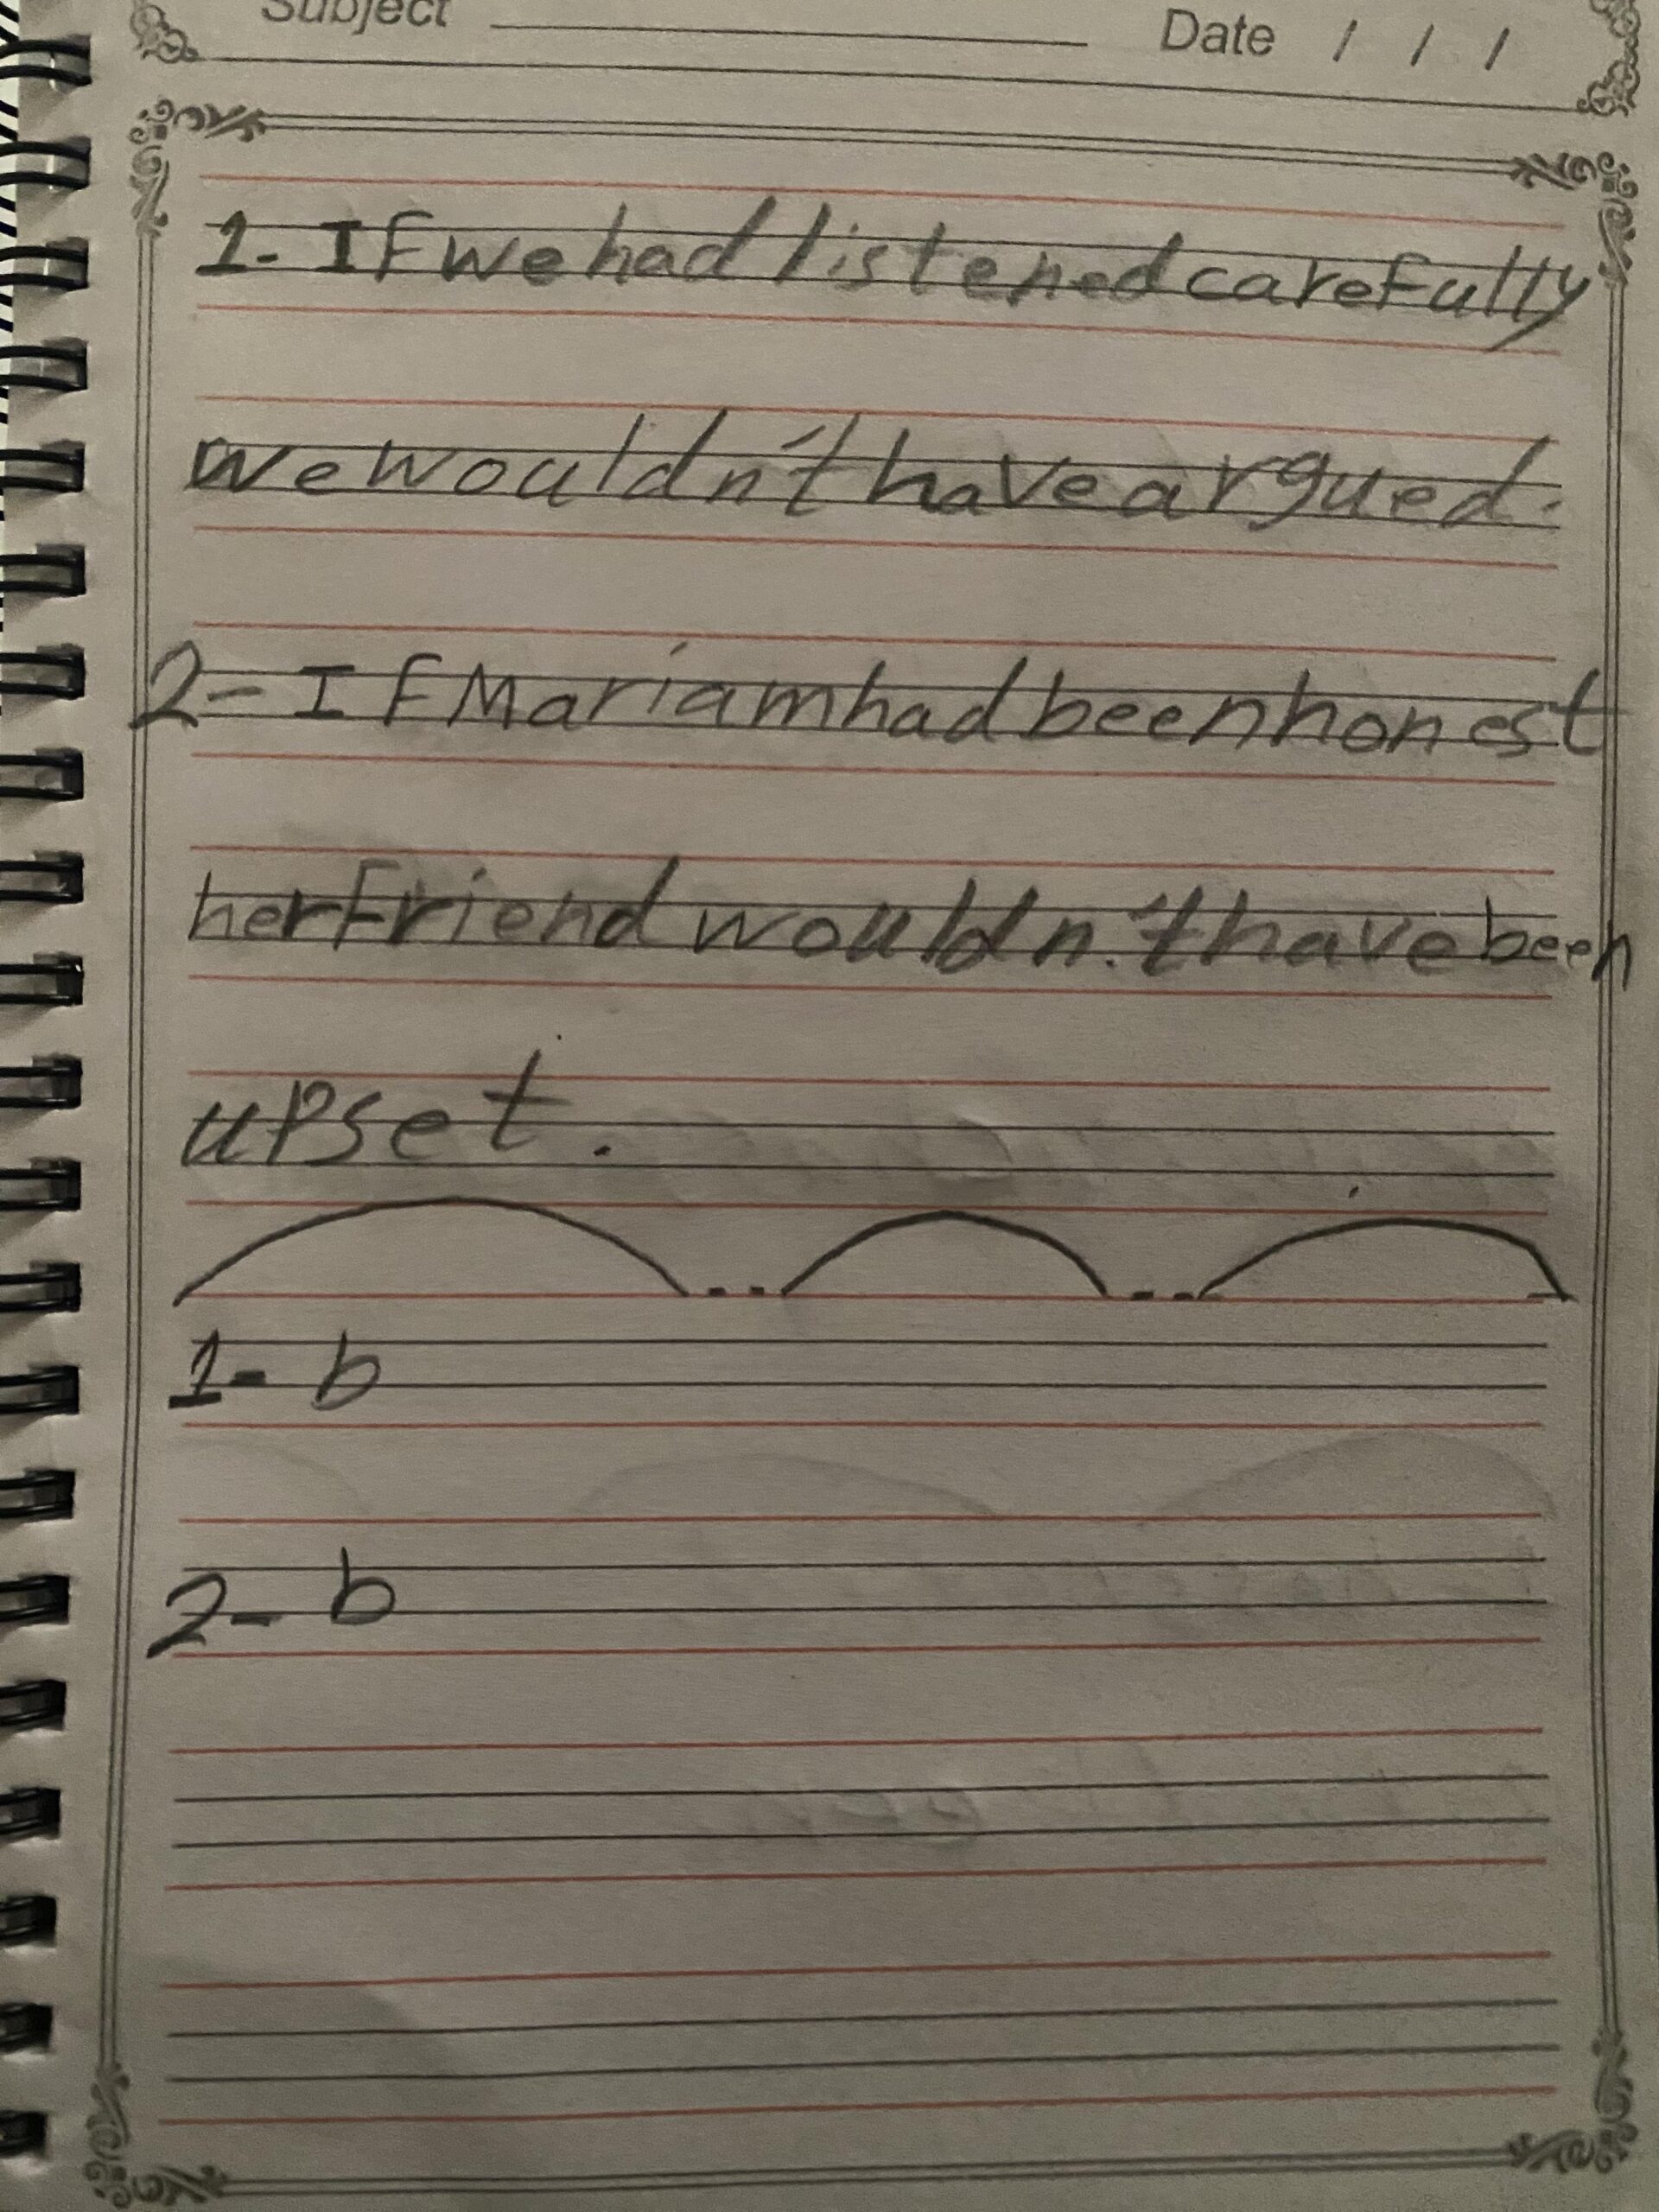 Subject Date / / /
1- If we had listened carefully
we wouldn't have argued.
2- If Mariam had been honest
her friend wouldn't have been
upset.
1- b
2- b